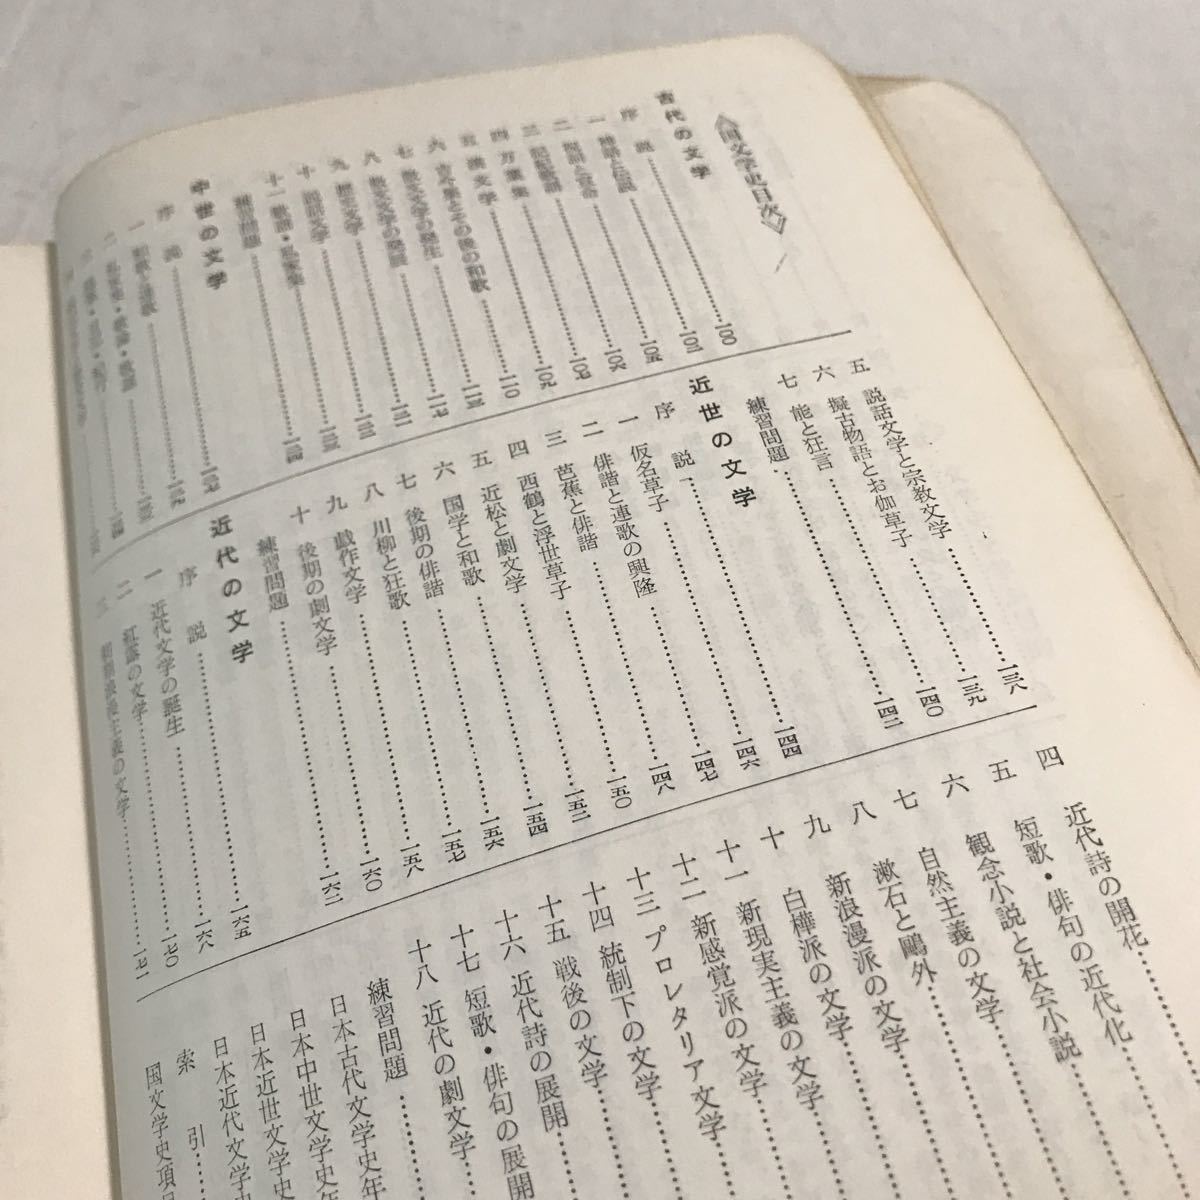 国文学史目次
古代の文学
序説……一〇〇
一 神話と伝説……一〇三
二 祝詞と宣命……一〇五
三 記紀歌謡……一〇六
四 万葉集……一〇七
五 漢文学……一〇九
六 古今集とその後の和歌……一一〇
七 散文文学の発生……一一三
八 散文文学の発展……一一七
九 歴史文学……一二一
十 説話文学……一二三
十一 歌謡・私家集
練習問題……一二四
中世の文学
序説……一二七
一 和歌と連歌
五 説話文学と宗教文学……一三八
六 擬古物語とお伽草子……一三九
七 能と狂言……一四〇
練習問題……一四二
近世の文学
序説……一四四
一 仮名草子……一四六
二 俳諧と連歌の興隆……一四七
三 芭蕉と俳諧……一四八
四 西鶴と浮世草子……一五〇
五 近松と劇文学……一五二
六 国学と和歌……一五四
七 後期の俳諧……一五六
八 川柳と狂歌……一五七
九 戯作文学……一五八
十 後期の劇文学……一六〇
練習問題……一六二
近代の文学
序説……一六五
一 近代文学の誕生……一六八
二 紅露の文学……一七〇
三 前期浪漫主義の文学……一七一
四 近代詩の開花……
五 短歌・俳句の近代化……
六 観念小説と社会小説……
七 自然主義の文学……
八 漱石と鷗外……
九 新浪漫派の文学……
十 白樺派の文学……
十一 新現実主義の文学……
十二 新感覚派の文学……
十三 プロレタリア文学……
十四 統制下の文学……
十五 戦後の文学……
十六 近代詩の展開……
十七 短歌・俳句の展開
十八 近代の劇文学……
練習問題……
日本古代文学史年
日本中世文学史年
日本近世文学史
日本近代文学史
索引……
国文学史項